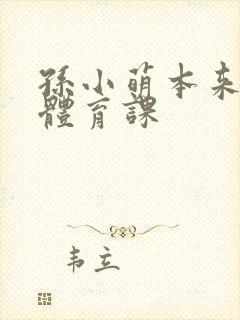 孫小萌本来
體育課
韦立